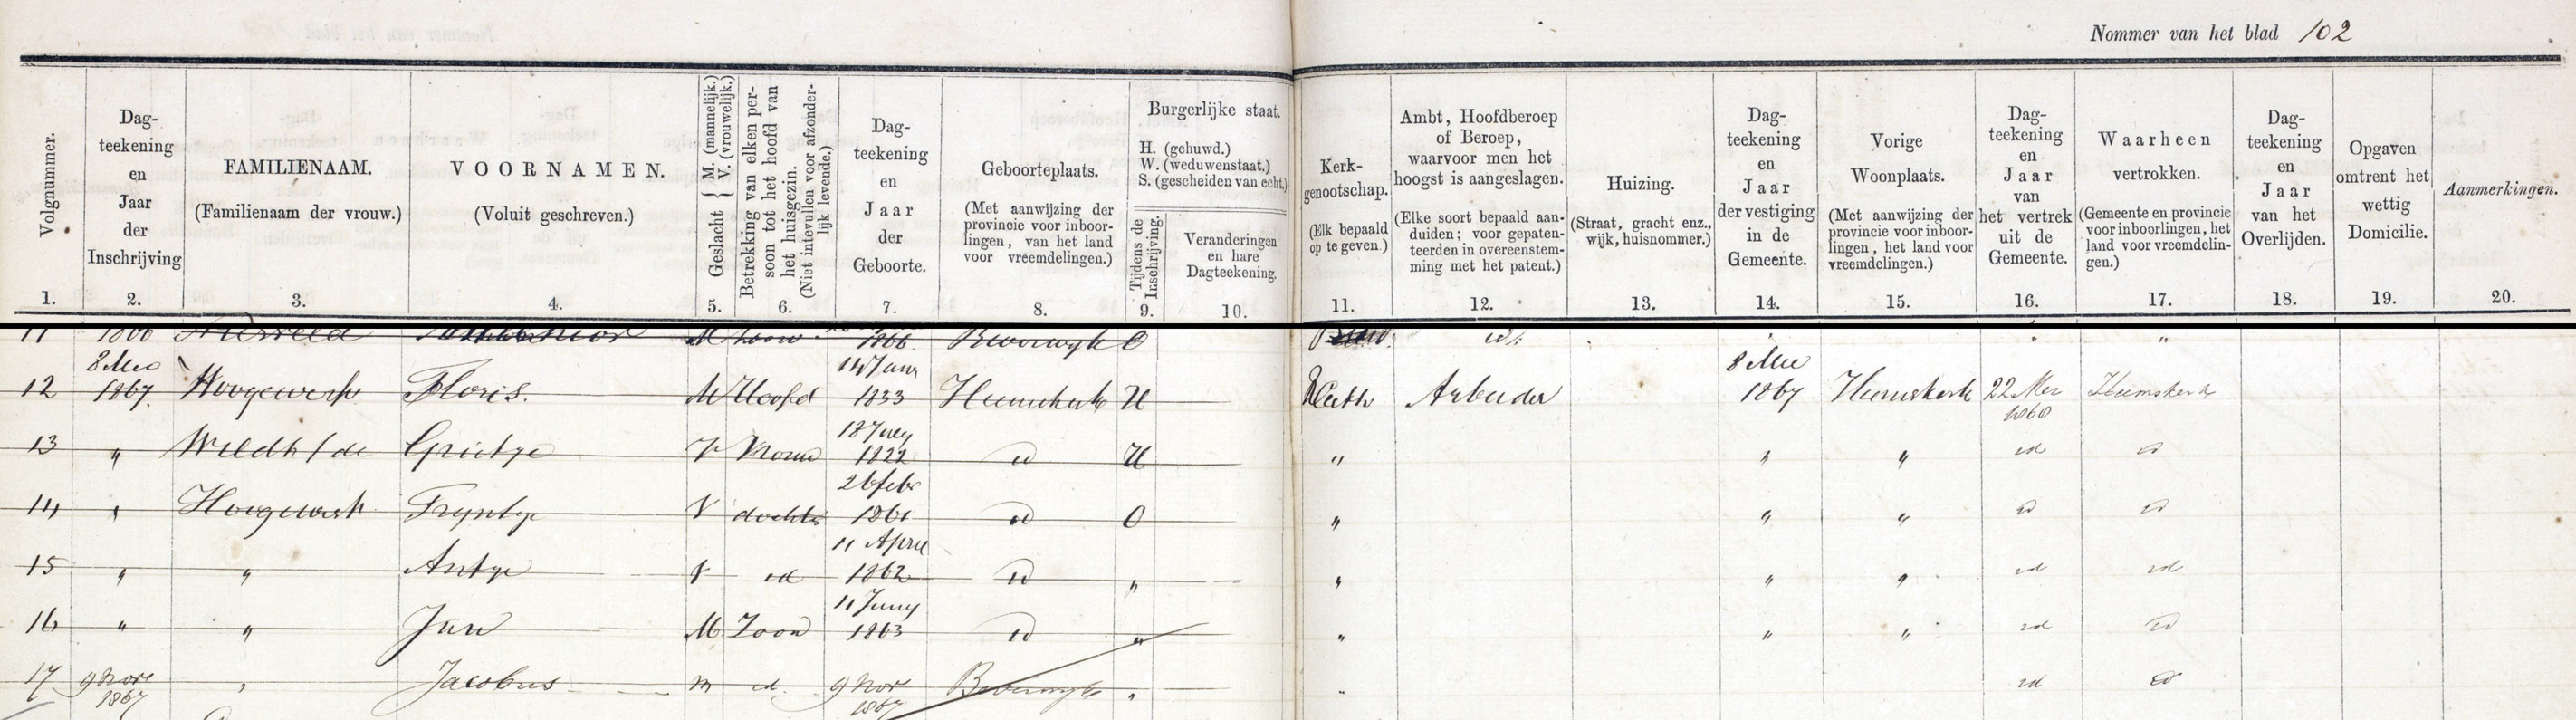 Nommer van het blad 102
Volgnummer.
Dag-
teekening
en
Jaar
der
Inschrijving
FAMILIENAAM.
(Familienaam der vrouw.)
VOORNAMEN.
(Voluit geschreven.)
Geslacht { M. (mannelijk.) V. (vrouwelijk.)
Betrekking van elken per-
soon tot het hoofd van
het huisgezin.
(Niet intevullen voor afzonder-
lijk levende.)
Dag-
teekening
en
Jaar
der
Geboorte.
Geboorteplaats.
(Met aanwijzing der
provincie voor inboor-
lingen, van het land
voor vreemdelingen.)
Burgerlijke staat.
H. (gehuwd.)
W. (weduwenstaat.)
S. (gescheiden van echt.)
Tijdens de
Inschrijving.
Veranderingen
en hare
Dagteekening.
Kerk-
genootschap.
(Elk bepaald
op te geven.)
Ambt, Hoofdberoep
of Beroep,
waarvoor men het
hoogst is aangeslagen.
(Elke soort bepaald aan-
duiden; voor gepaten-
teerden in overeenstem-
ming met het patent.)
Huizing.
(Straat, gracht enz.,
wijk, huisnommer.)
Dag-
teekening
en
Jaar
der vestiging
in de
Gemeente.
Vorige
Woonplaats.
(Met aanwijzing der
provincie voor inboor-
lingen, het land voor
vreemdelingen.)
Dag-
teekening
en
Jaar
van
het vertrek
uit de
Gemeente.
Waarheen
vertrokken.
(Gemeente en provincie
voor inboorlingen, het
land voor vreemdelin-
gen.)
Dag-
teekening
en
Jaar
van het
Overlijden.
Opgaven
omtrent het
wettig
Domicilie.
Aanmerkingen.
1. 2. 3. 4. 5. 6. 7. 8. 9. 10. 11. 12. 13. 14. 15. 16. 17. 18. 19. 20.
11 1866 M zoon 1866 Beverwyk O id. "
12 8 Mei 1867 Hoogewerf Floris. M Hoofd 1833 Heemskerk H Kath Arbeider 8 Mei 1867 Heemskerk 22 Mei 1868 Heemskerk
13 " Weldt / de Grietje V Vrouw 18 July 1822 id H " " " id id
14 " Hoogewerf Tryntje V dochter 26 febr 1861 id O " " " id id
15 " " Antje V id 11 April 1862 id " " " " id id
16 " " Jan M Zoon 11 Juny 1863 id " " " " id id
17 9 Nov 1867 " Jacobus M id. 9 Nov 1867 Beverwyk " " id id